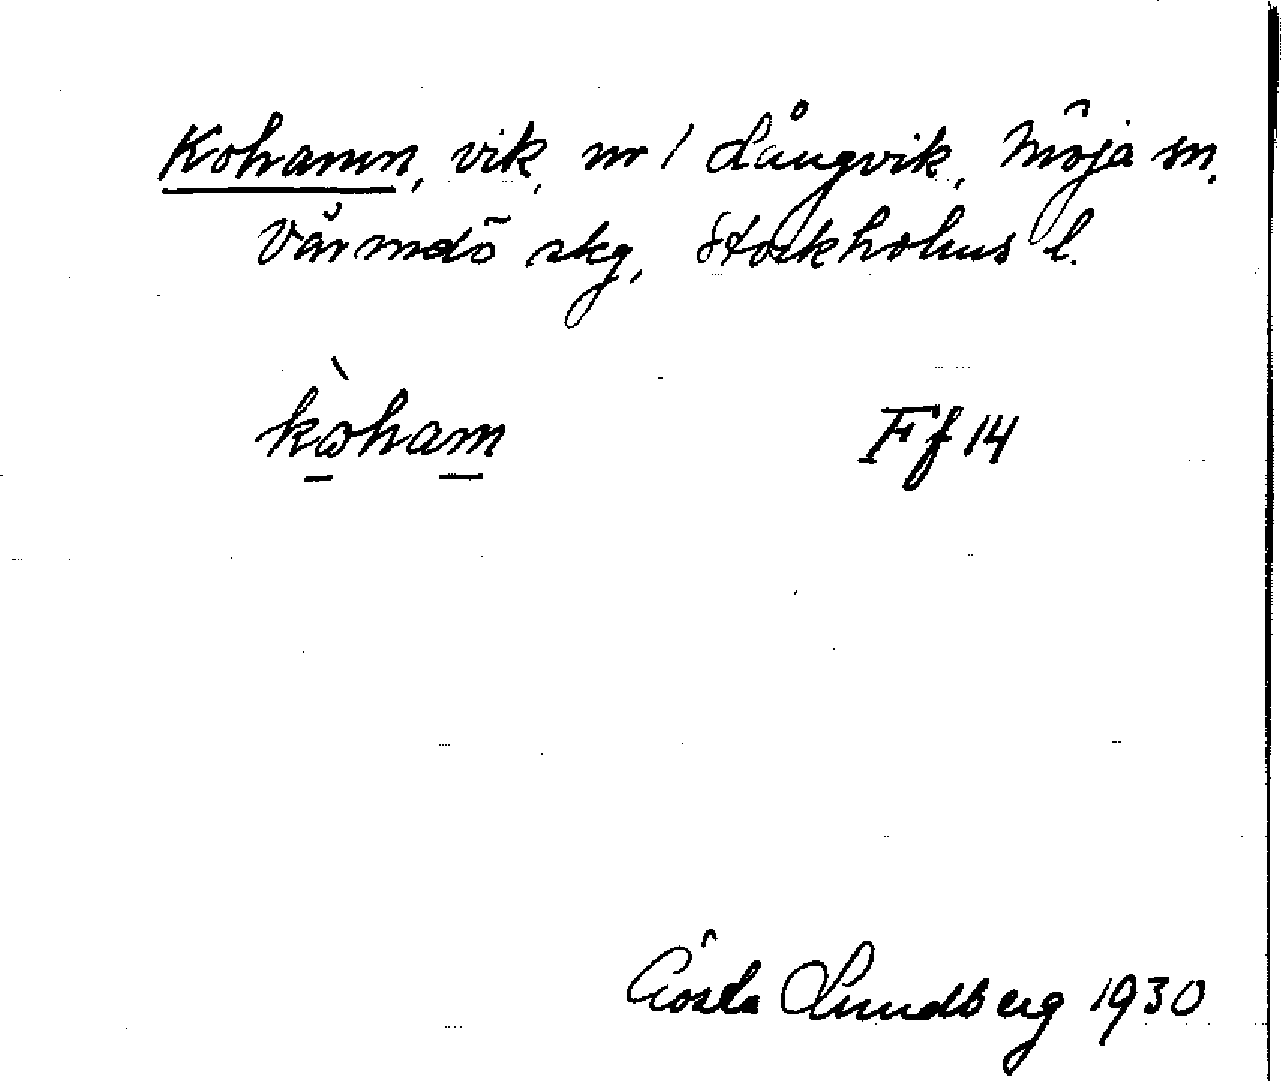 Kohamn, vik, nr 1 Långvik, Möja sn,
Värmdö skg, Stockholms l.
kòham
Ff 14
Gösta Lundberg 1930